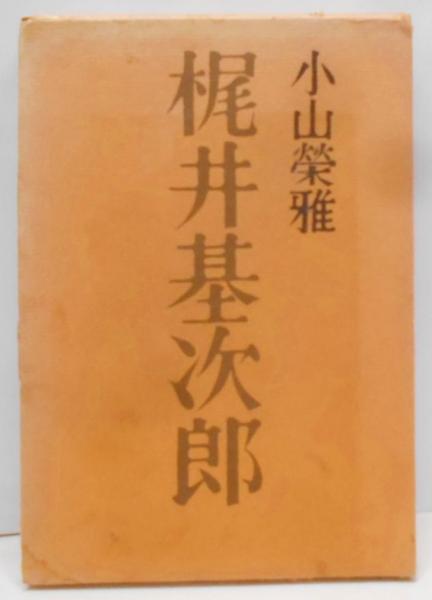 小山榮雅
梶井基次郎